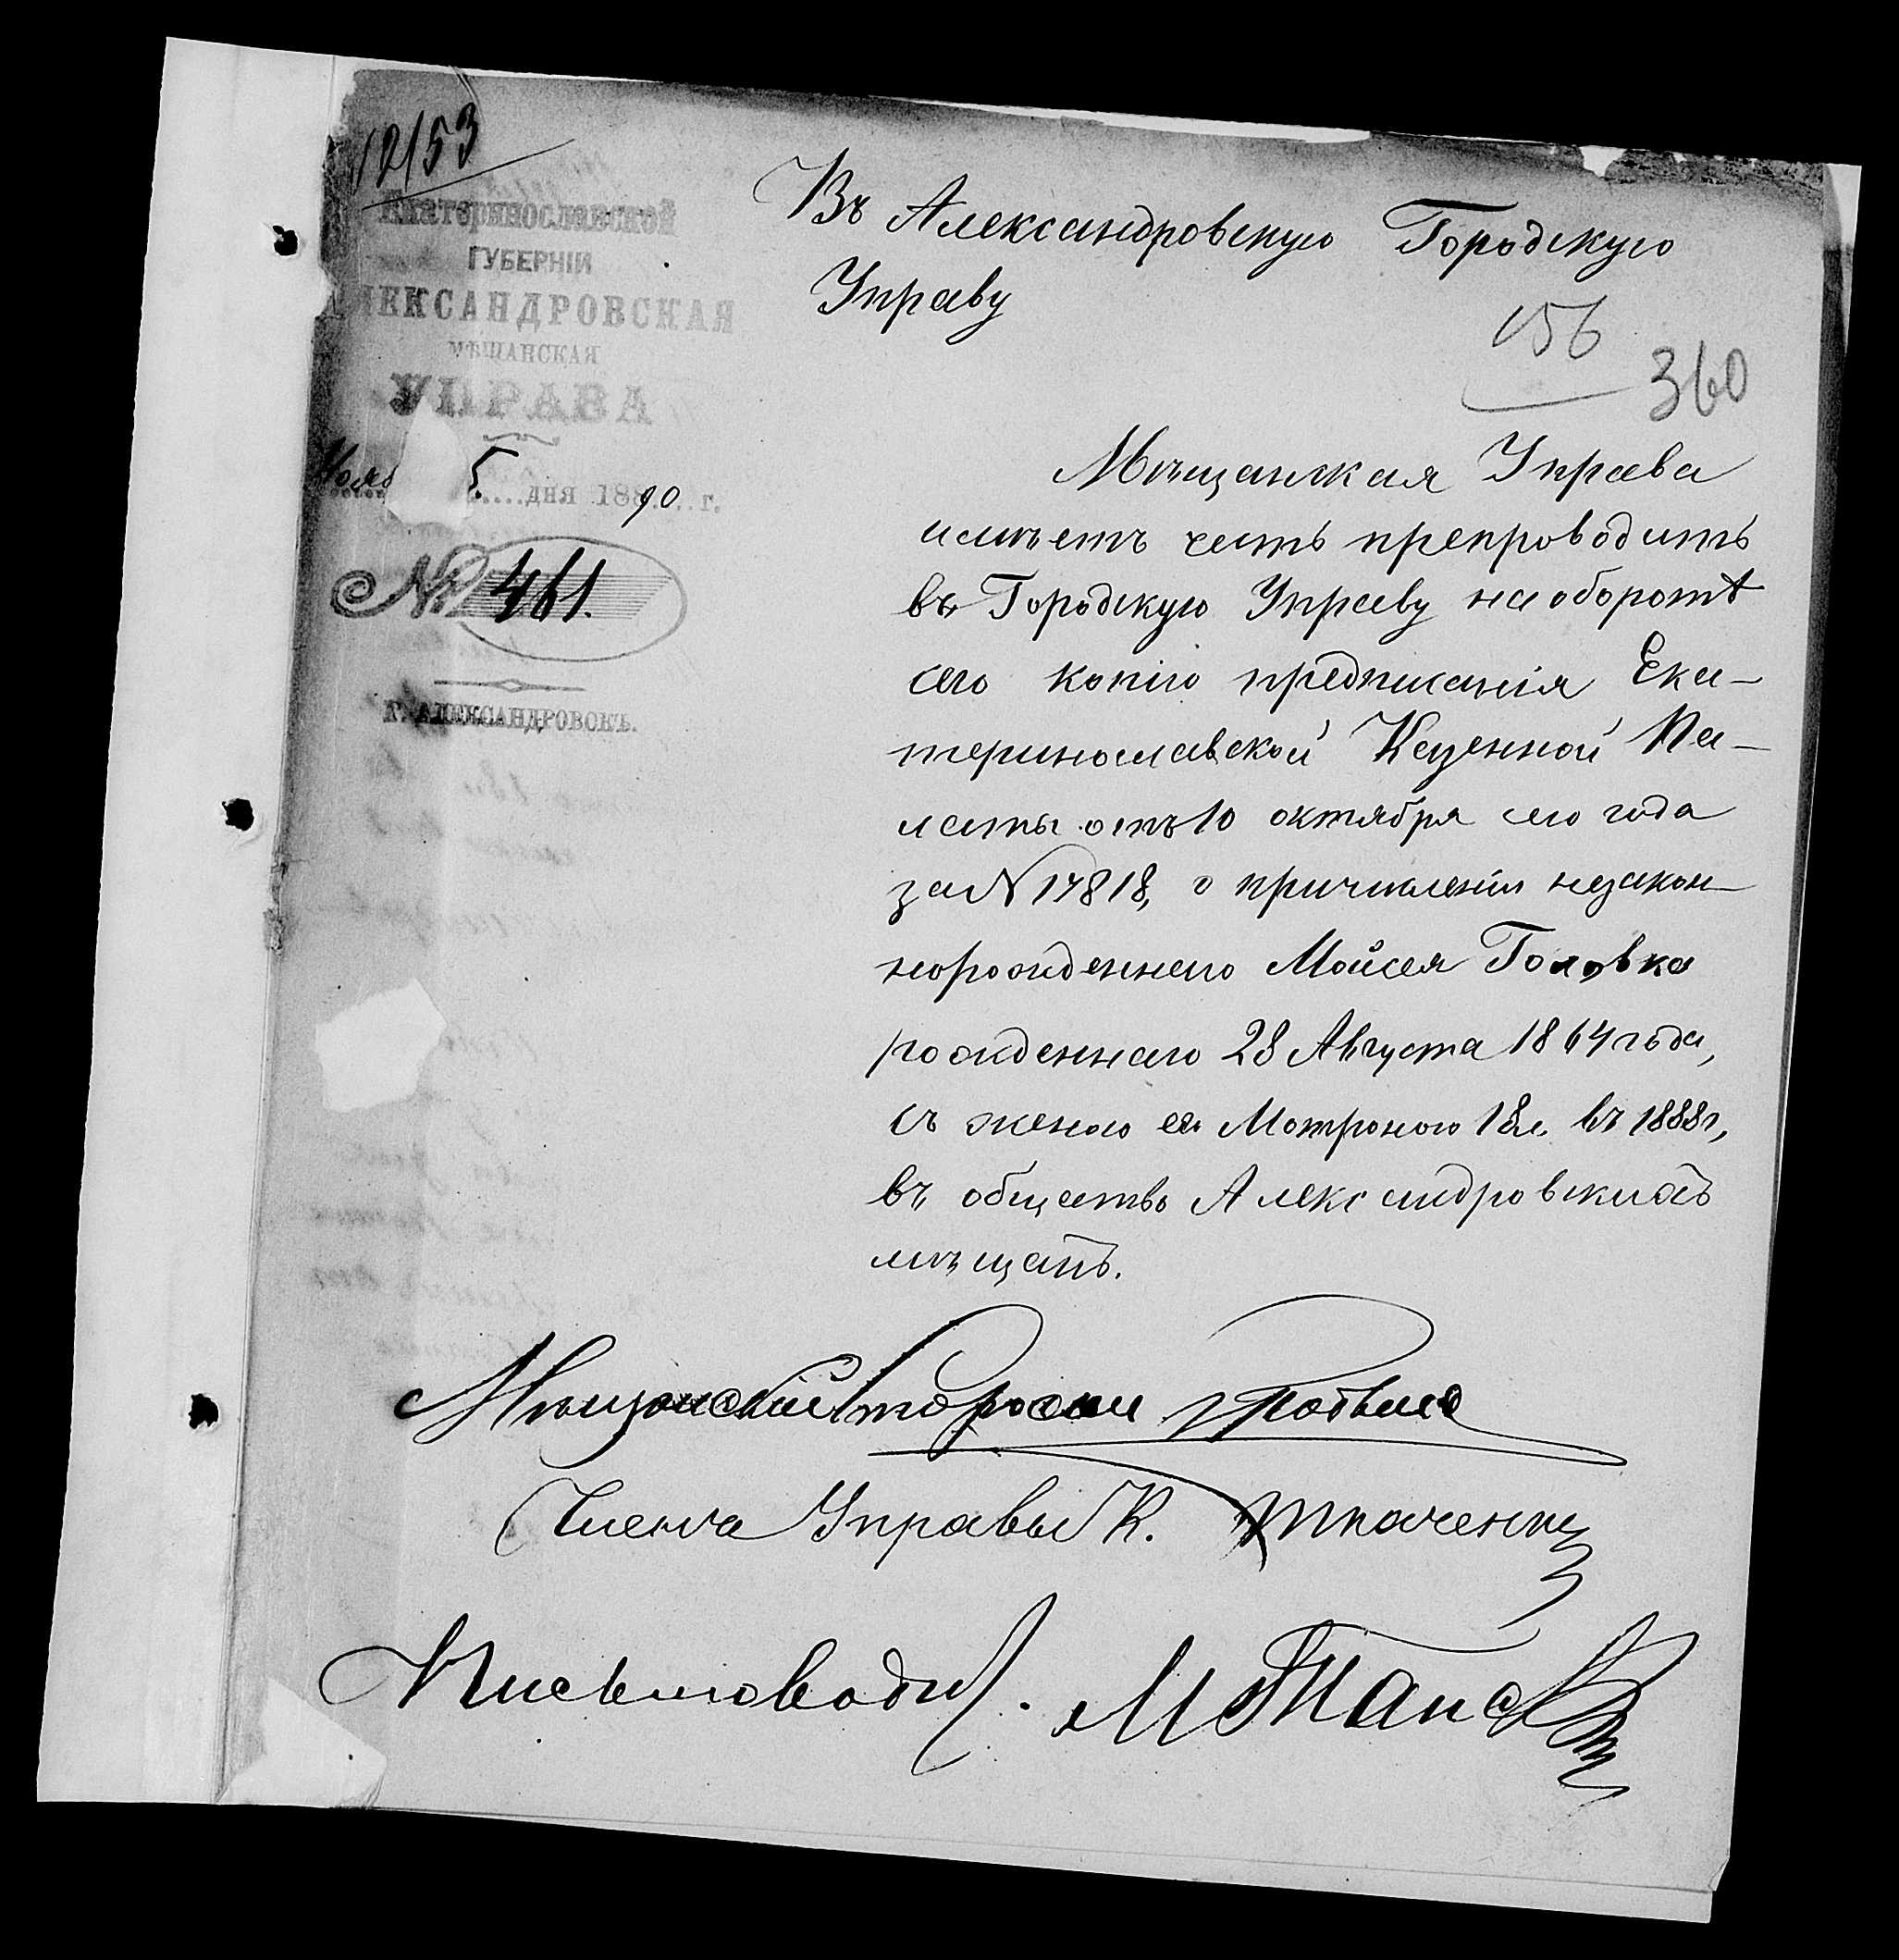 12153
Екатеринославской
ГУБЕРНІИ
АЛЕКСАНДРОВСКАЯ
МѢЩАНСКАЯ
УПРАВА
5 дня 1890 г.
№ 461.
Г. АЛЕКСАНДРОВСКЪ.
Въ Александровскую Городскую
Управу
156
360
Мѣщанская Управа
имѣетъ честь препроводить
въ Городскую Управу на оборотѣ
сего копію предписанія Ека-
теринославской Казенной Па-
латы отъ 10 октября сего года
за N 17818, о причисленіи незакон-
норожденнаго Мойсея Головка
рожденнаго 28 Августа 1864 года,
съ женою его Мотроною 18 л. въ 1888 г,
въ общество Александровскихъ
мѣщанъ.
Мѣщанскій Староста
Члена Управы К. Ткаченко
Письмоводи.